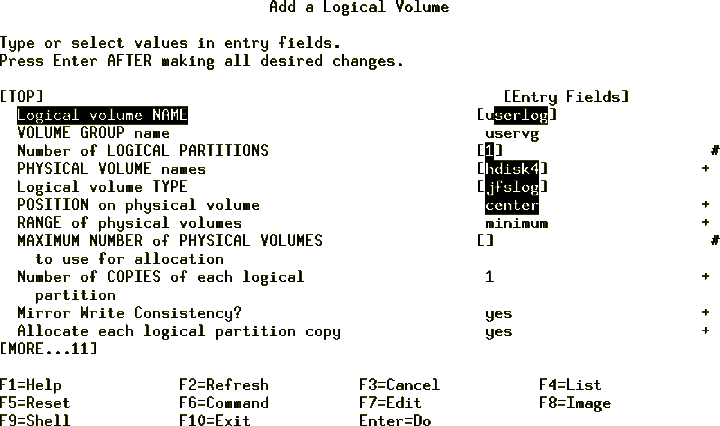 Add a Logical Volume
Type or select values in entry fields.
Press Enter AFTER making all desired changes.
[TOP] [Entry Fields]
Logical volume NAME [userlog]
VOLUME GROUP name uservg
Number of LOGICAL PARTITIONS [1] #
PHYSICAL VOLUME names [hdisk4] +
Logical volume TYPE [jfslog]
POSITION on physical volume center +
RANGE of physical volumes minimum +
MAXIMUM NUMBER of PHYSICAL VOLUMES [] #
to use for allocation
Number of COPIES of each logical 1 +
partition
Mirror Write Consistency? yes +
Allocate each logical partition copy yes +
[MORE...11]
F1=Help F2=Refresh F3=Cancel F4=List
F5=Reset F6=Command F7=Edit F8=Image
F9=Shell F10=Exit Enter=Do